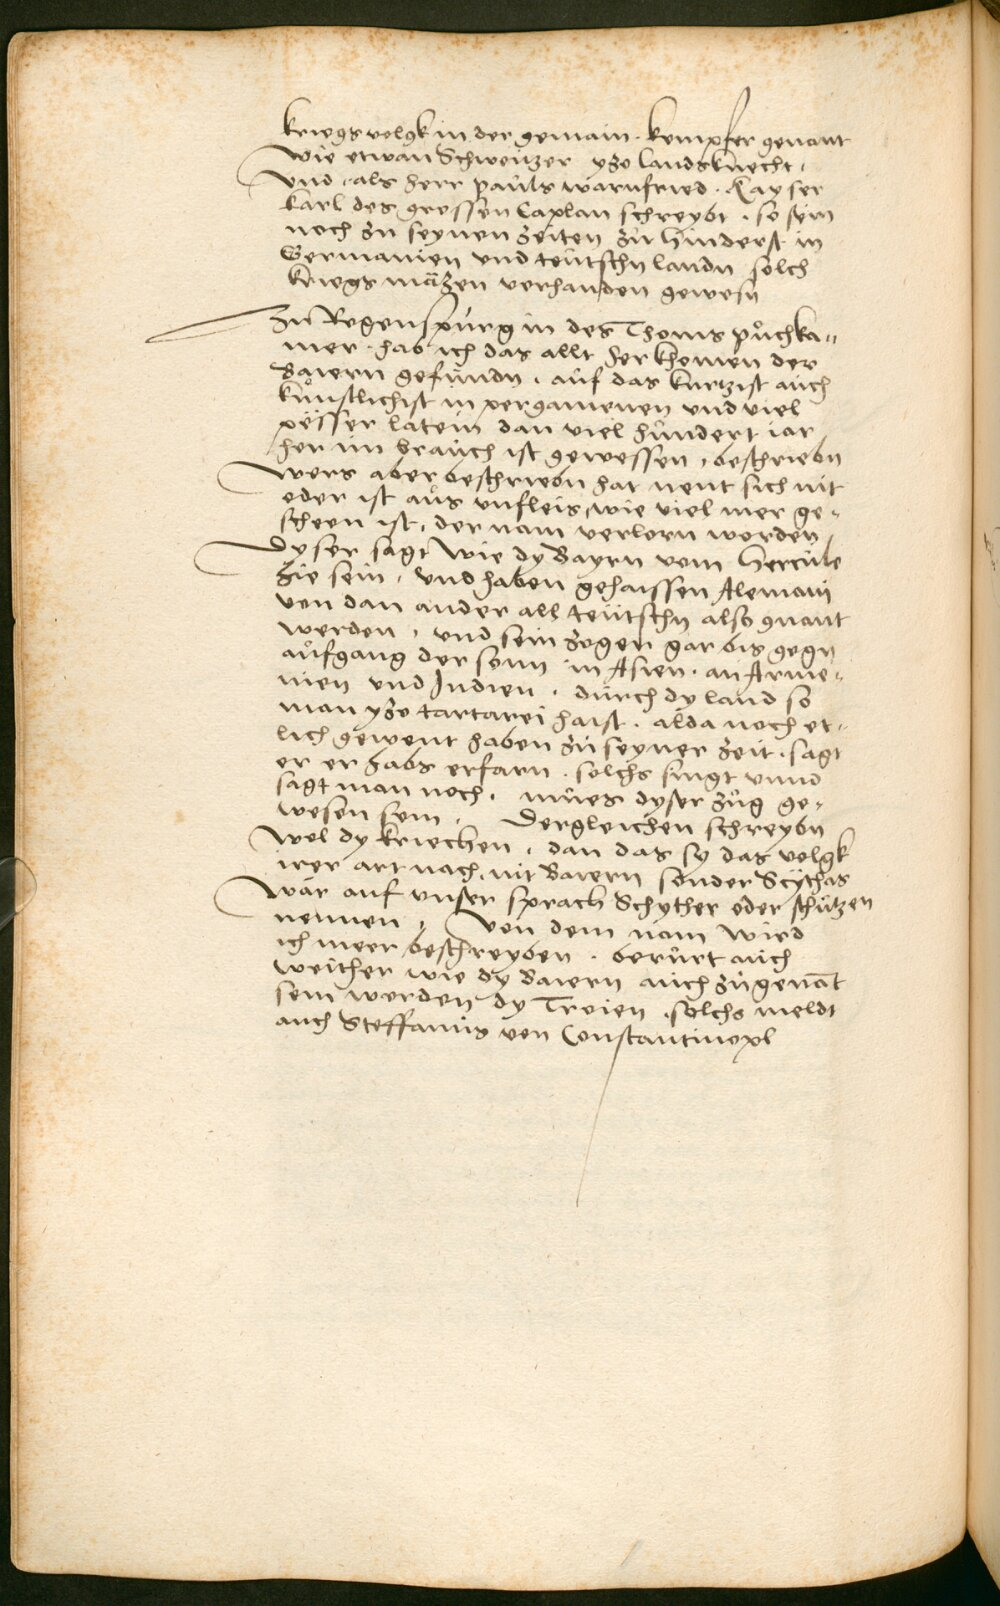 kriegsvolgk in der gemain · kempfer genant
wie etwan Schweutzer yzo landsknecht ·
Und · als herr pauls warnfried · Kayser
karl des grossen Caplan schreybt · so sein
noch zu seynen zeiten zu hinderst in
Germanien und teutschn landn solch
kriegs mäzen verhanden gewesn
Zu Regenspurg in des Thoms půchka„
mer · hab ich das allt herkhomen der
Baiern gefundn · auf das kurtzist auch
kůnstlichist in pergamenen und viel
pësser latein dan viel hundert iar
her im brauch ist gewessen · beschriebn
Wers aber beschriebn hat nent sich nit
oder ist aus unfleis, wie viel mer ge„
scheen ist, der nam verlorn worden,
Dyser sagt wie dy Bayrn vom Hercule
hie sein · und haben gehaissen Alemani
von dan ander all teutschn also gnant
werden, und sein zogen gar bis gegn
aůfgang der sonn in Asien · an Arme„
nien und Indien · durch dy land so
man yzo tartarei haist · alda noch et„
lich gewont haben zu seyner zeit · sagt
er er habs erfarn · solchs singt unnd
sagt man noch · můes dyser zůg ge„
wesen sein · Dergleichen schreybn
wol dy kriechen, dan das sy das volgk
irer art nach, nit Baiern sonder Scythas
war auf unser sprach Schyther oder schützen
nennen, Von dem nam wird
ich meer beschreyben · berůrt auch
weither wie dy Baiern auch zůgenāt
sein worden dy Troien · solchs meldt
auch Steffanus von Constantinopl